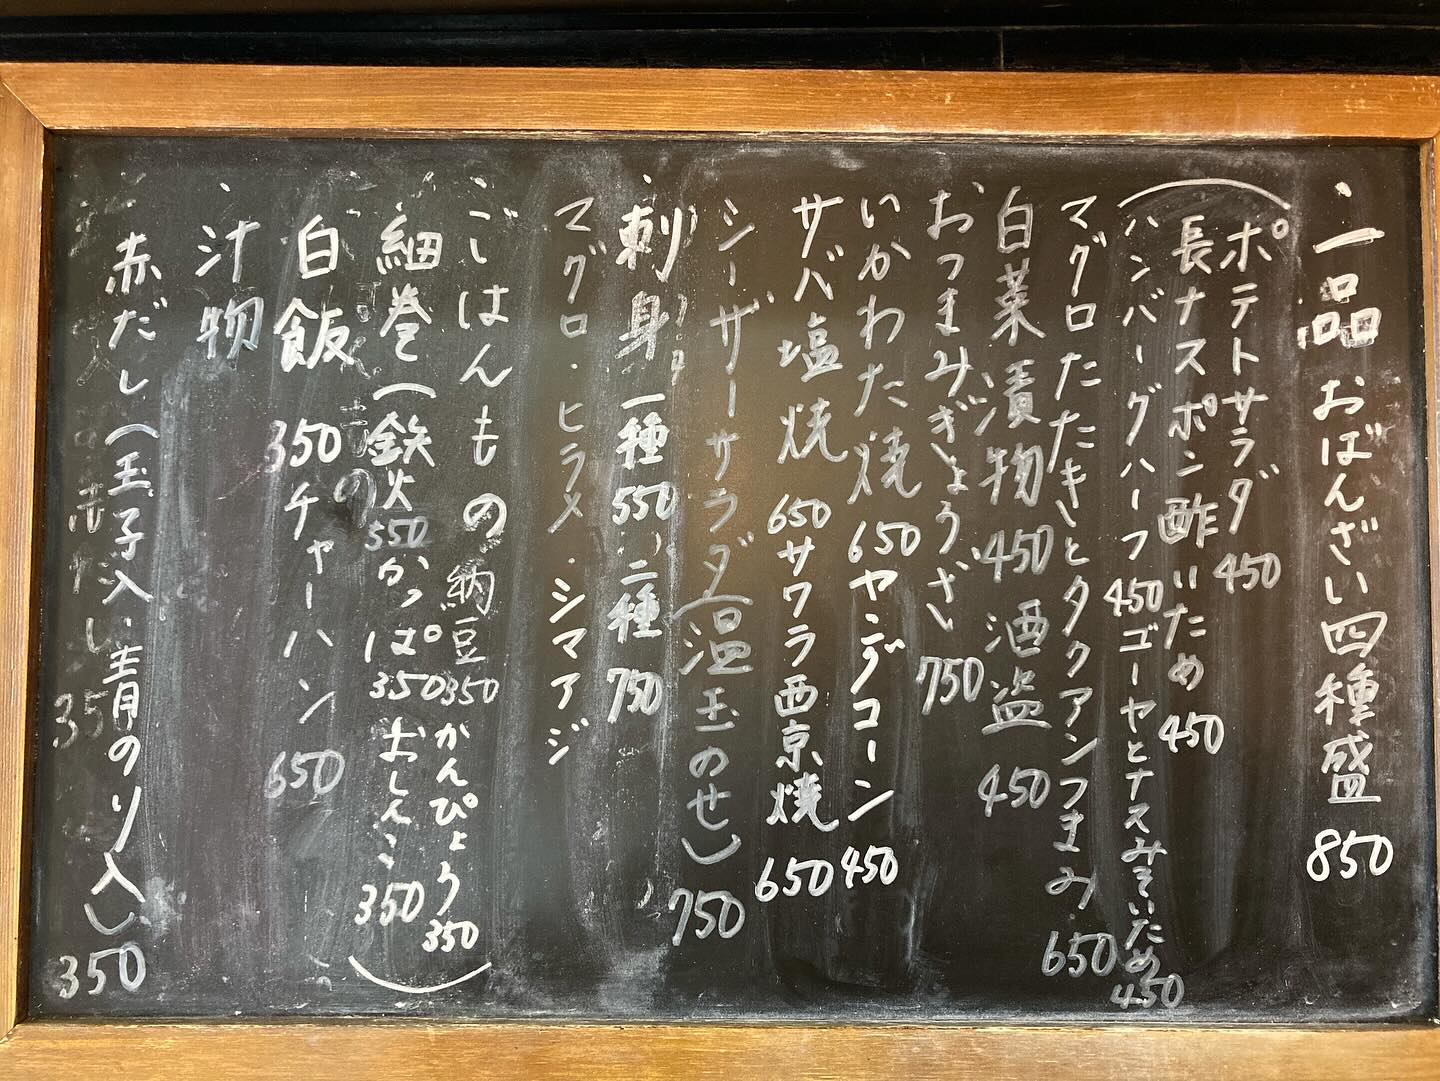 一品 おばんざい四種盛 850
ポテトサラダ 450
長ナスポン酢いため 450
ハンバーグハーフ 450 ゴーヤとナスみそいため 450
マグロたたきとタクアンつまみ 650
白菜漬物 450 酒盗 450
おつまみぎょうざ 750
いかわた焼 650 ヤングコーン 450
サバ塩焼 650 サワラ西京焼 650
シーザーサラダ(温玉のせ) 750
刺身 一種 550 二種 750
マグロ・ヒラメ・シマアジ
ごはんもの 納豆 350 かんぴょう 350
細巻(鉄火 550 かっぱ 350 おしんこ 350)
白飯 350 チャーハン 650
汁物
赤だし(玉子入・青のり入) 350